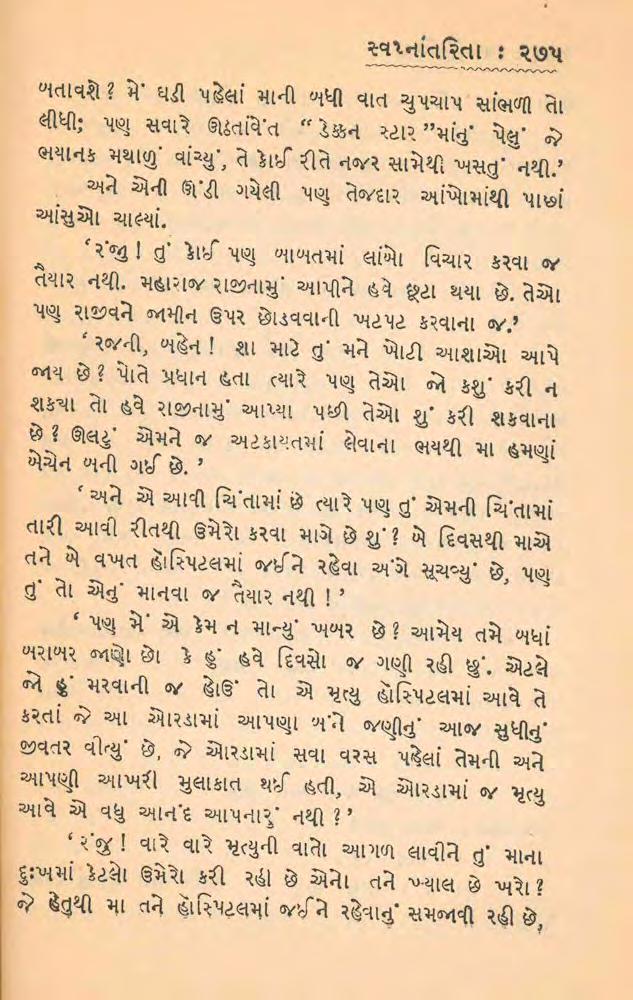 સ્વપ્નાંતરિતા : ૨૭૫
બતાવશે ? મેં ઘડી પહેલાં માની બધી વાત ચુપચાપ સાંભળી તો
લીધી; પણ સવારે ઊઠતાંવેંત “ ડેક્કન સ્ટાર ”માંનું પેલું જે
ભયાનક મથાળું વાંચ્યું, તે કોઈ રીતે નજર સામેથી ખસતું નથી.’
અને એની ઊંડી ગયેલી પણ તેજદાર આંખોમાંથી પાછાં
આંસુઓ ચાલ્યાં.
‘રંજી ! તું કોઈ પણ બાબતમાં લાંબો વિચાર કરવા જ
તૈયાર નથી. મહારાજ રાજીનામું આપીને હવે છૂટા થયા છે. તેઓ
પણ રાજીવને જામીન ઉપર છોડવવાની ખટપટ કરવાના જ.’
‘ રજની, બહેન ! શા માટે તું મને ખોટી આશાઓ આપે
જાય છે ? પોતે પ્રધાન હતા ત્યારે પણ તેઓ જો કશું કરી ન
શકયા તો હવે રાજીનામું આપ્યા પછી તેઓ શું કરી શકવાના
છે ? ઊલટું એમને જ અટકાયતમાં લેવાના ભયથી મા હમણાં
બેચેન બની ગઈ છે. ’
‘ અને એ આવી ચિંતામાં છે ત્યારે પણ તું એમની ચિંતામાં
તારી આવી રીતથી ઉમેરો કરવા માગે છે શું ? બે દિવસથી માએ
તને બે વખત હૉસ્પિટલમાં જઈને રહેવા અંગે સૂચવ્યું છે, પણ
તું તો એનું માનવા જ તૈયાર નથી ! ’
‘ પણ મેં એ કેમ ન માન્યું ખબર છે ? આમેય તમે બધાં
બરાબર જાણો છો કે હું હવે દિવસો જ ગણી રહી છું. એટલે
જો હું મરવાની જ હોઉં તો એ મૃત્યુ હૉસ્પિટલમાં આવે તે
કરતાં જે આ ઓરડામાં આપણા બંને જણીનું આજ સુધીનું
જીવતર વીત્યું છે, જે ઓરડામાં સવા વરસ પહેલાં તેમની અને
આપણી આખરી મુલાકાત થઈ હતી, એ ઓરડામાં જ મૃત્યુ
આવે એ વધુ આનંદ આપનારું નથી ?’
‘ રંજુ ! વારે વારે મૃત્યુની વાતો આગળ લાવીને તું માના
દુઃખમાં કેટલો ઉમેરો કરી રહી છે એનો તને ખ્યાલ છે ખરો ?
જે હેતુથી મા તને હૉસ્પિટલમાં જઈને રહેવાનું સમજાવી રહી છે,